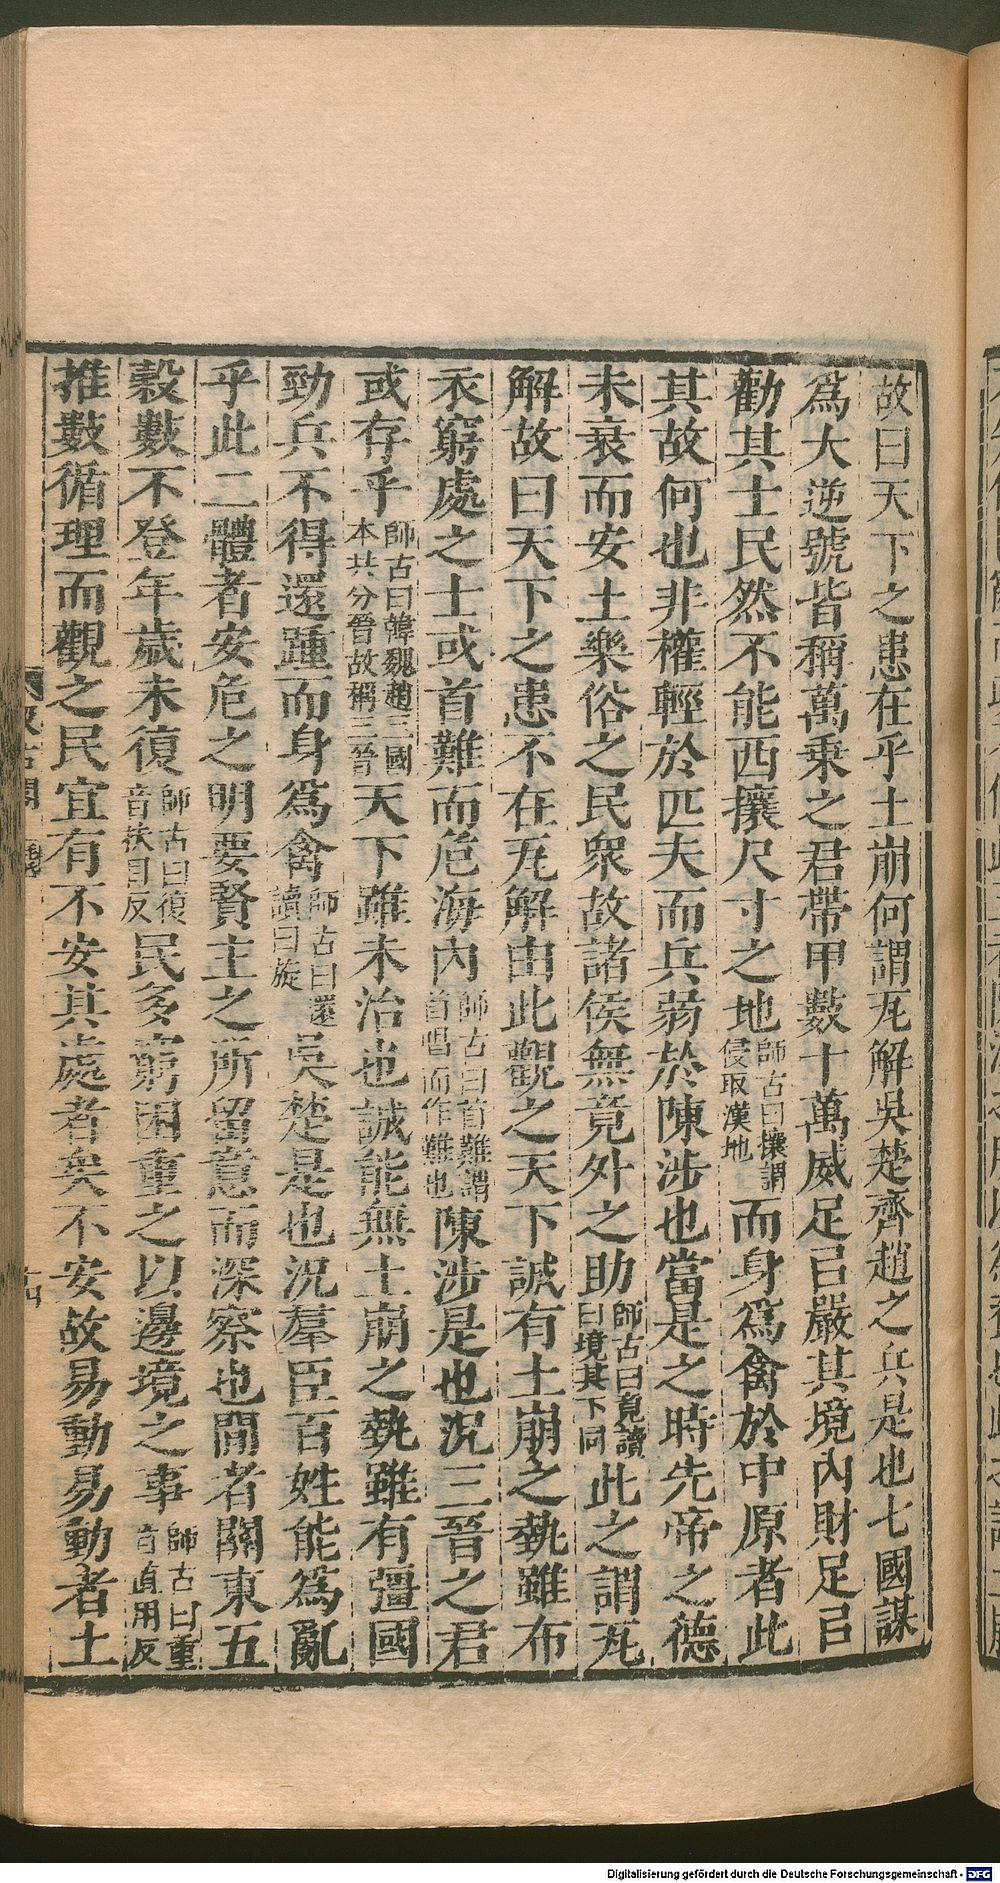 故曰天下之患在乎土崩何謂瓦解吳楚齊趙之兵是也七國謀
爲大逆號皆稱萬乘之君帶甲數十萬威足㠯嚴其境內財足㠯
勸其士民然不能西攘尺寸之地師古曰攘謂侵取漢地而身爲禽於中原者此
其故何也非權輕於匹夫而兵弱於陳涉也當是之時先帝之德
未衰而安土樂俗之民衆故諸侯無竟外之助師古曰竟讀曰境其下同此之謂瓦
解故曰天下之患不在瓦解由此觀之天下誠有土崩之埶雖布
衣窮處之士或首難而危海內師古曰首難謂首唱而作難也陳涉是也況三晉之君
或存乎師古曰韓魏趙三國本共分晉故稱三晉天下雖未治也誠能無土崩之埶雖有彊國
勁兵不得還踵而身爲禽師古曰還讀曰旋吳楚是也況羣臣百姓能爲亂
乎此二體者安危之明要賢主之所留意而深察也閒者關東五
穀數不登年歲未復師古曰復音扶目反民多窮困重之以邊境之事師古曰重音直用反
推數循理而觀之民宜有不安其處者矣不安故易動易動者土
Digitalisierung gefördert durch die Deutsche Forschungsgemeinschaft - DFG